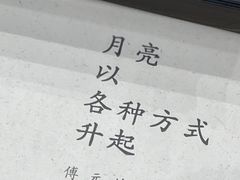 月亮
以
各种方式
升起
傅元